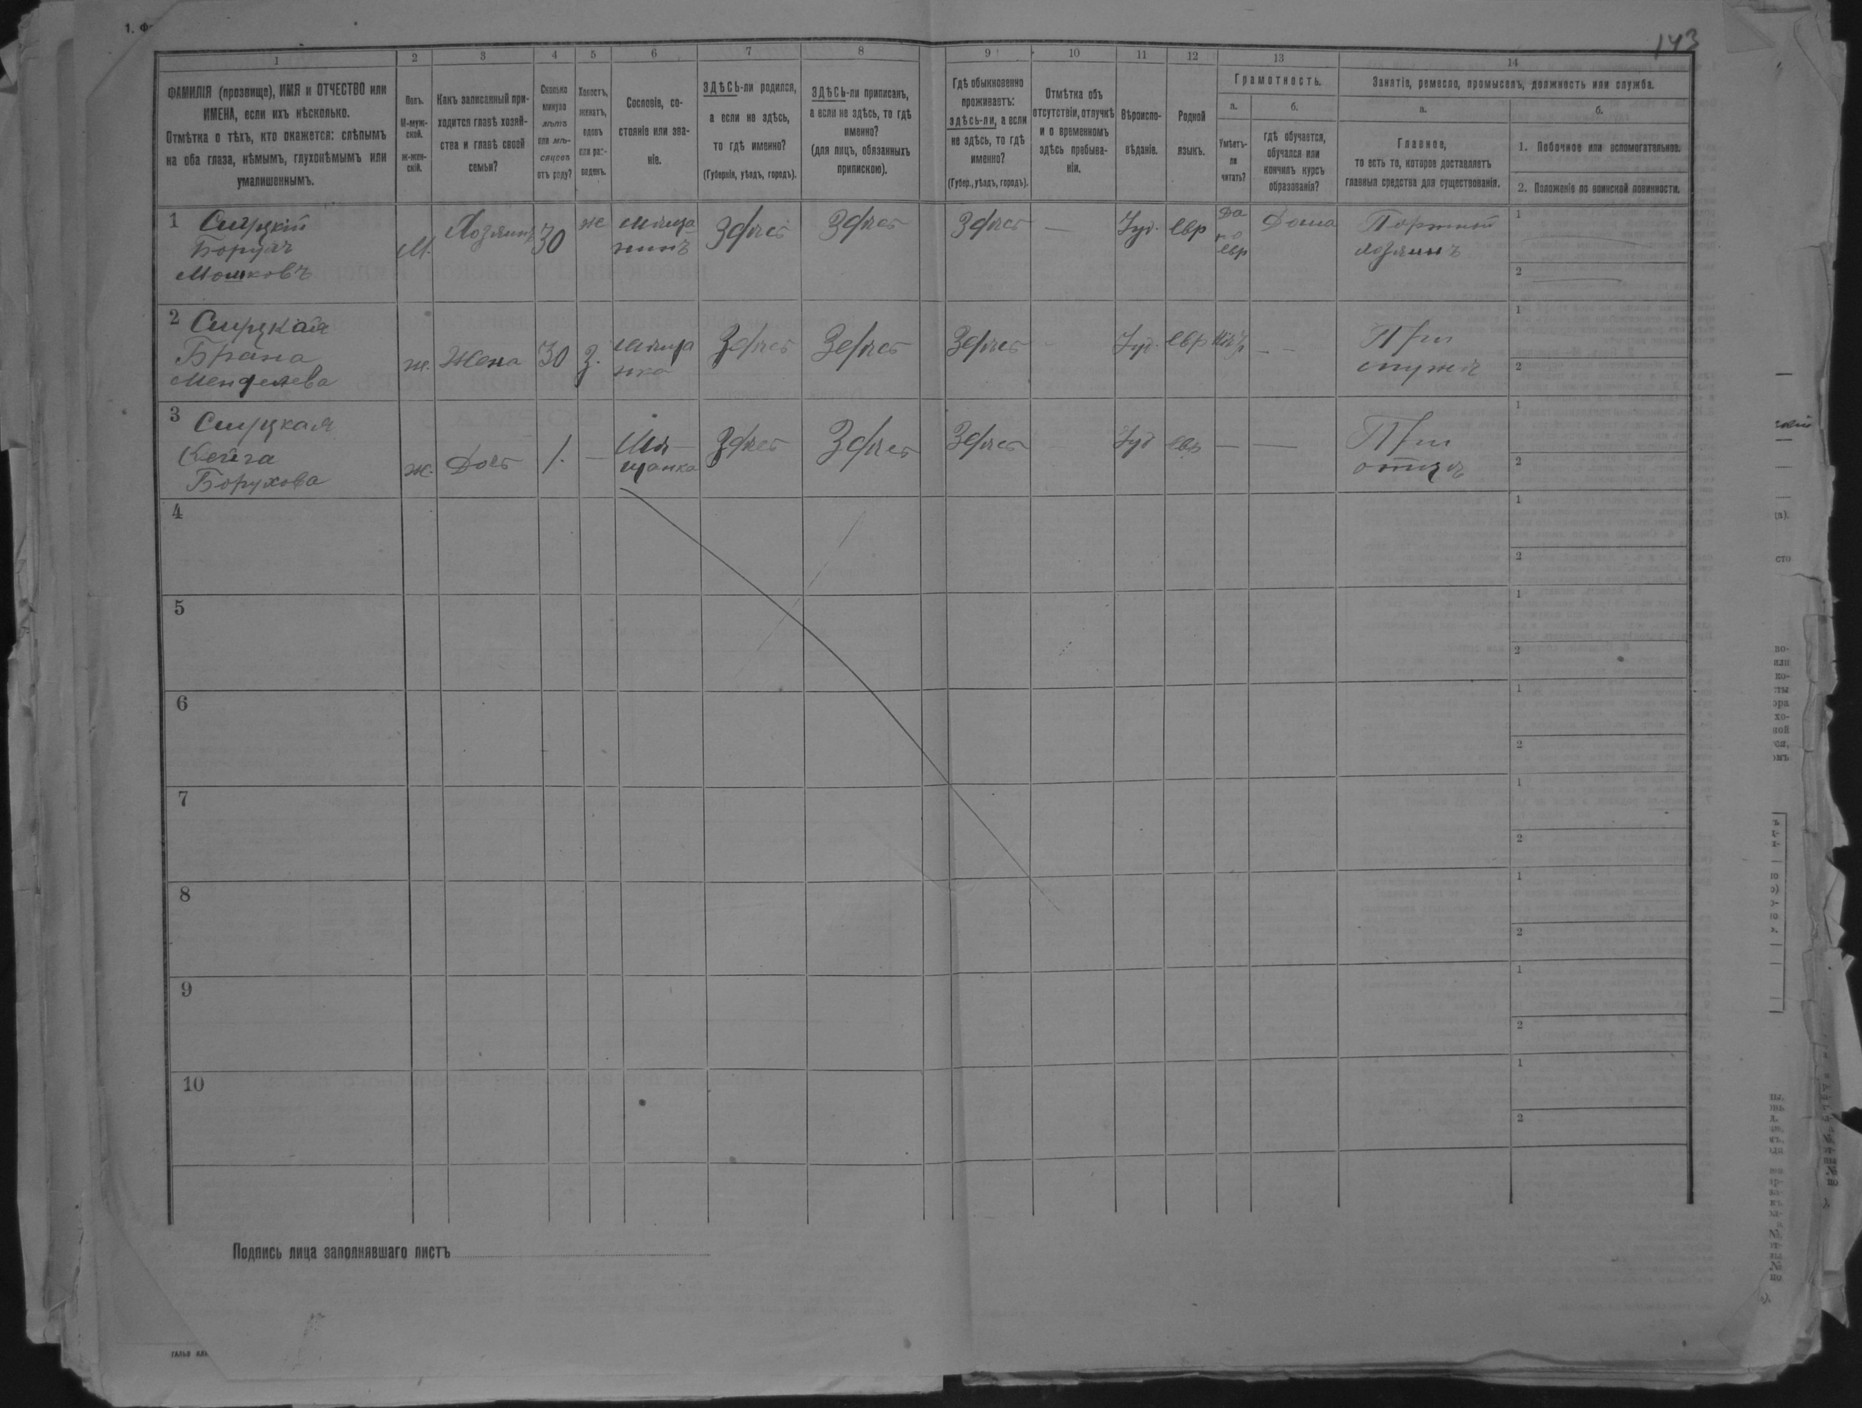 1. Ф
143
1
2
3
4
5
6
7
8
9
10
11
12
13
14
ФАМИЛІЯ (прозвище), ИМЯ и ОТЧЕСТВО или
ИМЕНА, если ихъ нѣсколько.
Отмѣтка о тѣхъ, кто окажется: слѣпымъ
на оба глаза, нѣмымъ, глухонѣмымъ или
умалишеннымъ.
Полъ.
М-муж-
ской.
ж-жен-
скій.
Какъ записанный при-
ходится главѣ хозяй-
ства и главѣ своей
семьи?
Сколько
минуло
лѣтъ
или мѣ-
сяцевъ
отъ роду?
Холостъ,
женатъ,
вдовъ
или раз-
веденъ.
Сословіе, со-
стояніе или зва-
ніе.
ЗДѢСЬ-ли родился,
а если не здѣсь,
то гдѣ именно?
(Губернія, уѣздъ, городъ).
ЗДѢСЬ-ли приписанъ,
а если не здѣсь, то гдѣ
именно?
(для лицъ, обязанныхъ
припискою).
Гдѣ обыкновенно
проживаетъ:
здѣсь-ли, а если
не здѣсь, то гдѣ
именно?
(Губер., уѣздъ, городъ).
Отмѣтка объ
отсутствіи, отлучкѣ
и о временномъ
здѣсь пребыва-
ніи.
Вѣроиспо-
вѣданіе.
Родной
языкъ.
Грамотность.
а.
б.
Умѣетъ-
ли
читать?
гдѣ обучается,
обучался или
кончилъ курсъ
образованія?
Занятіе, ремесло, промыселъ, должность или служба.
а.
б.
Главное,
то есть то, которое доставляетъ
главныя средства для существованія.
1. Побочное или вспомогательное.
2. Положеніе по воинской повинности.
1 Слуцкій
Борухъ
Мошковъ
М.
Хозяинъ
30
же
мѣща
нинъ
Здѣсь
Здѣсь
Здѣсь
—
Іуд.
евр
Да
по
евр
Дома
Портной
хозяинъ
1
2
2 Слуцкая
Брана
Менделева
ж.
Жена
30
З.
мѣща
нка
Здѣсь
Здѣсь
Здѣсь
Іуд.
евр
нѣтъ
При
мужѣ
1
2
3 Слуцкая
Борухова
ж.
Дочь
1.
—
Мѣ
щанка
Здѣсь
Здѣсь
Здѣсь
Іуд
евр
—
—
При
отцѣ
1
2
4
1
2
5
1
2
6
1
2
7
1
2
8
1
2
9
1
2
10
1
2
Подпись лица заполнявшаго листъ